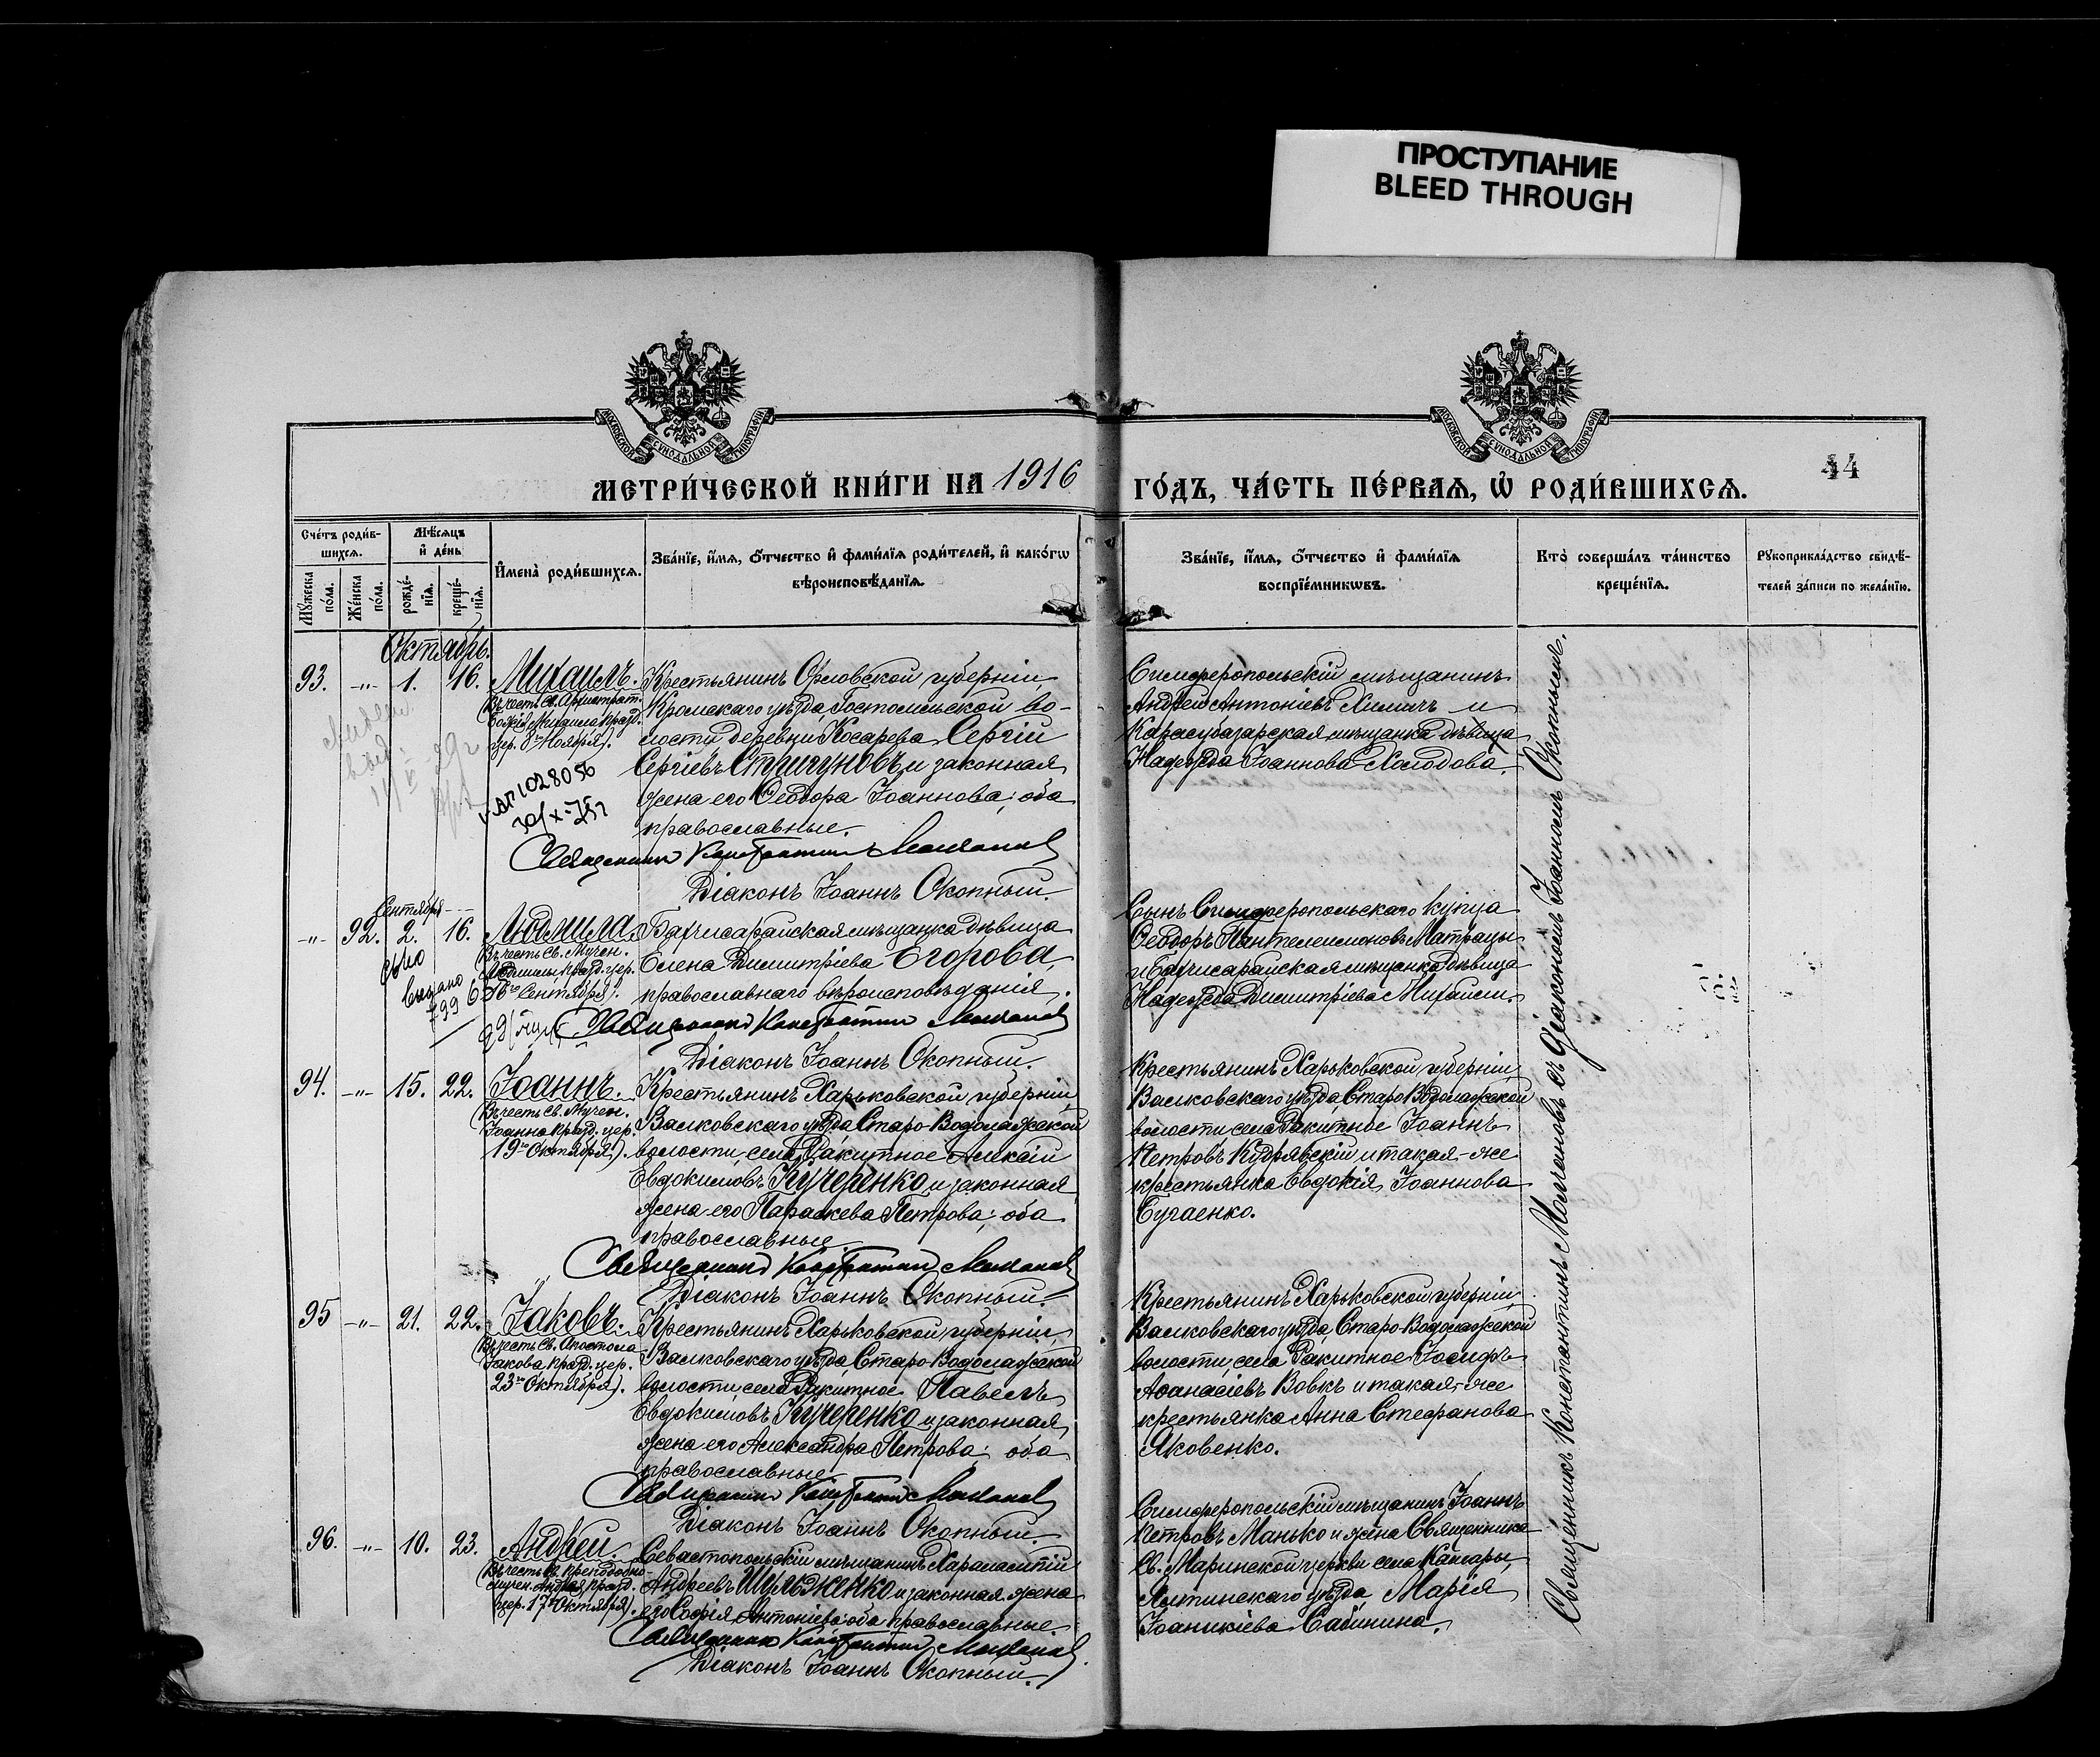 ПРОСТУПАНИЕ
BLEED THROUGH
МОСКОВСКОЙ СѴНОДАЛЬНОЙ ТИПОГРАФІИ
МОСКОВСКОЙ СѴНОДАЛЬНОЙ ТИПОГРАФІИ
МЕТРИ́ЧЕСКОЙ КНИ́ГИ НА 1916
ГО́ДЪ, ЧА́СТЬ ПЕ́РВАЯ, Ѽ РОДИ́ВШИХСЯ.
44
Сче́тъ роди́в-
шихся.
Мѣ́сяцъ
и҆ де́нь
Мꙋ́жеска
по́ла.
Же́нска
по́ла.
рожде́-
нїя.
креще́-
нїя.
И҆мена̀ роди́вшихся.
Зва́нїе, и҆́мя, ѻ҆́тчество и҆ фами́лїя роди́телей, и҆ како́гѡ
вѣроисповѣ́данїя.
Зва́нїе, и҆́мя, ѻ҆́тчество и҆ фами́лїя
воспрїе́мникѡвъ.
Кто̀ соверша́лъ та́инство
креще́нїя.
Рꙋкоприкла́дство свидѣ́-
телей за́писи по жела́нїю.
Октябрь.
93. -"- 1. 16. Михаилъ.
Въ честь Св. Архистрат.
Божія Михаила празд.
цер. 8го Ноября).
Крестьянинъ Орловской губерніи
Кромскаго уѣзда, Гостомльской во-
лости деревни Косарева Сергій
Сергіевъ Стригуновъ и законная
жена его Ѳеодора Іоаннова; оба
православные.
Священникъ Константинъ Молчановъ
Діаконъ Іоаннъ Окопный.
1028056
30/X-75г
Симферопольскій мѣщанинъ
Андрей Антоніевъ Химичъ и
Карасубазарская мѣщанка дѣвица
Надежда Іоаннова Холодова.
Сентября
-"- 92. 2. 16. Людмила
Въ честь Св. Мучен.
Людмилы празд. цер.
16го Сентября).
Бахчисарайская мѣщанка дѣвица
Елена Димитріева Егорова,
православнаго вѣроисповѣданія.
Священникъ Константинъ Молчановъ
Діаконъ Іоаннъ Окопный.
Выдано
Сынъ Симферопольскаго купца
Ѳеодоръ Пантелеимоновъ Матрацы
и Бахчисарайская мѣщанка дѣвица
Надежда Димитріева Михаили.
94. -"- 15. 22. Іоаннъ.
Въ честь Св. Мучен.
Іоанна празд. цер.
19го Октября).
Крестьянинъ Харьковской губерніи,
Валковскаго уѣзда, Старо-Водолажской
волости, села Ракитное Алексій
Евдокимовъ Кучеренко и законная
жена его Параскева Петрова; оба
православные
Священникъ Константинъ Молчановъ
Діаконъ Іоаннъ Окопный.
Крестьянинъ Харьковской губерніи,
Валковскаго уѣзда, Старо-Водолажской
волости, села Ракитное Іоаннъ
Петровъ Кудрявскій и такая-же
крестьянка Евдокія Іоаннова
Бугаенко.
95 -"- 21. 22. Іаковъ.
Въ честь Св. Апостола
Іакова празд. цер.
23го Октября).
Крестьянинъ Харьковской губерніи,
Валковскаго уѣзда, Старо-Водолажской
волости, села Ракитное Павелъ
Евдокимовъ Кучеренко и законная
жена его Александра Петрова; оба
православные
Священникъ Константинъ Молчановъ
Діаконъ Іоаннъ Окопный.
Крестьянинъ Харьковской губерніи,
Валковскаго уѣзда, Старо-Водолажской
волости, села Ракитное Іосифъ
Аѳанасіевъ Вовкъ и такая-же
крестьянка Анна Стефанова
Яковенко.
96. -"- 10. 23. Андрей
Въ честь Св. преподобно-
мучен. Андрея празд.
цер. 17го Октября).
Севастопольскій мѣщанинъ Харалампій
Андреевъ Шульженко и законная жена
его Софія Антоніева: оба православные
Священникъ Константинъ Молчановъ
Діаконъ Іоаннъ Окопный.
Симферопольскій мѣщанинъ Іоаннъ
Петровъ Манько и жена Священника
Св. Маринской церкви села
Ялтинскаго уѣзда, Марія
Іоаникіева Сабинина.
Священникъ Константинъ Молчановъ съ діакономъ Іоанномъ Окопнымъ.